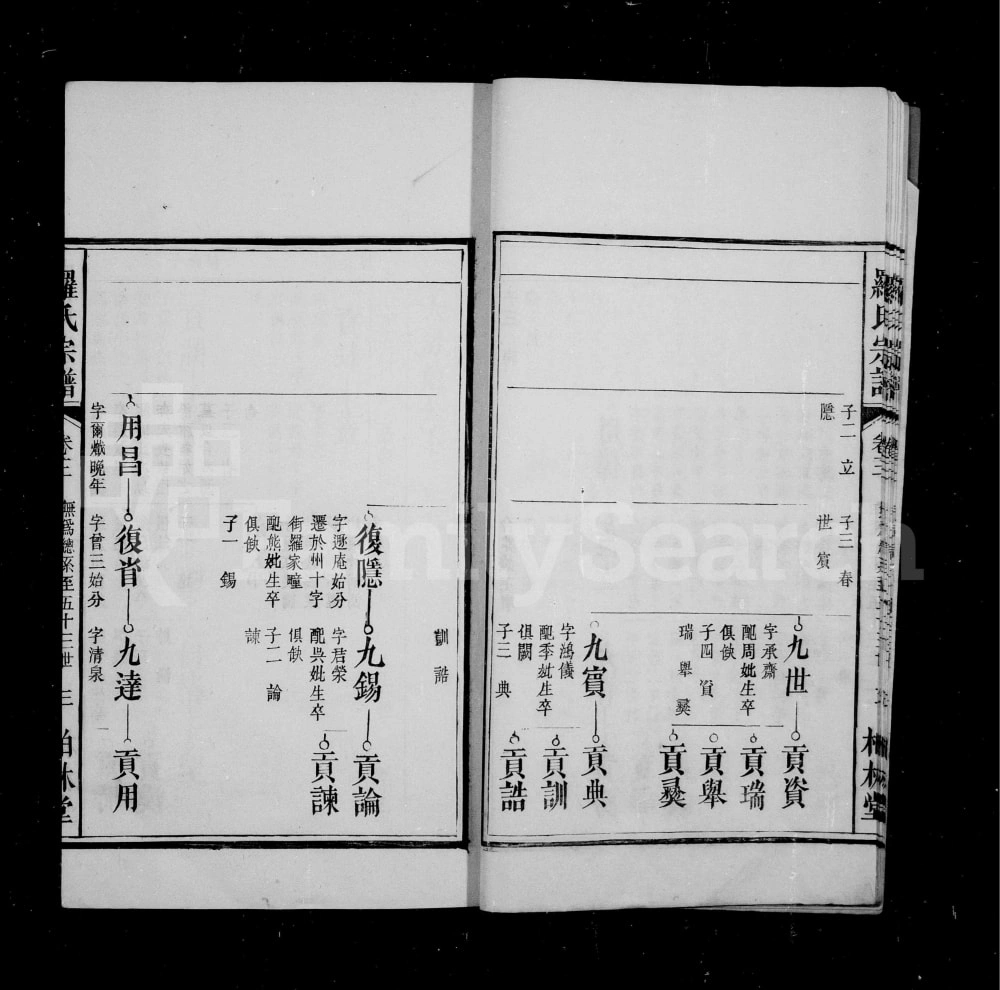 羅氏宗譜
卷三
柏林堂
子二 立
隱
子三 春
世 賓
九世
字承齋
配周妣生卒
俱缺
子四 資
瑞 舉 彛
貢資
貢瑞
貢舉
貢彛
九賓
字鴻儀
配季妣生卒
俱闕
子三 典
貢典
貢訓
貢誥
訓 誥
復隱
字遯庵始分
遷於州十字
街羅家疃
配熊妣生卒
俱缺
子一 錫
九錫
字君榮
配吳妣生卒
俱缺
子二 論
諫
貢論
貢諫
用昌
字爾熾晚年
復省
字曾三始分
九達
字清泉
貢用
羅氏宗譜
卷三
無為總系至五十三世
三
柏林堂
FamilySearch